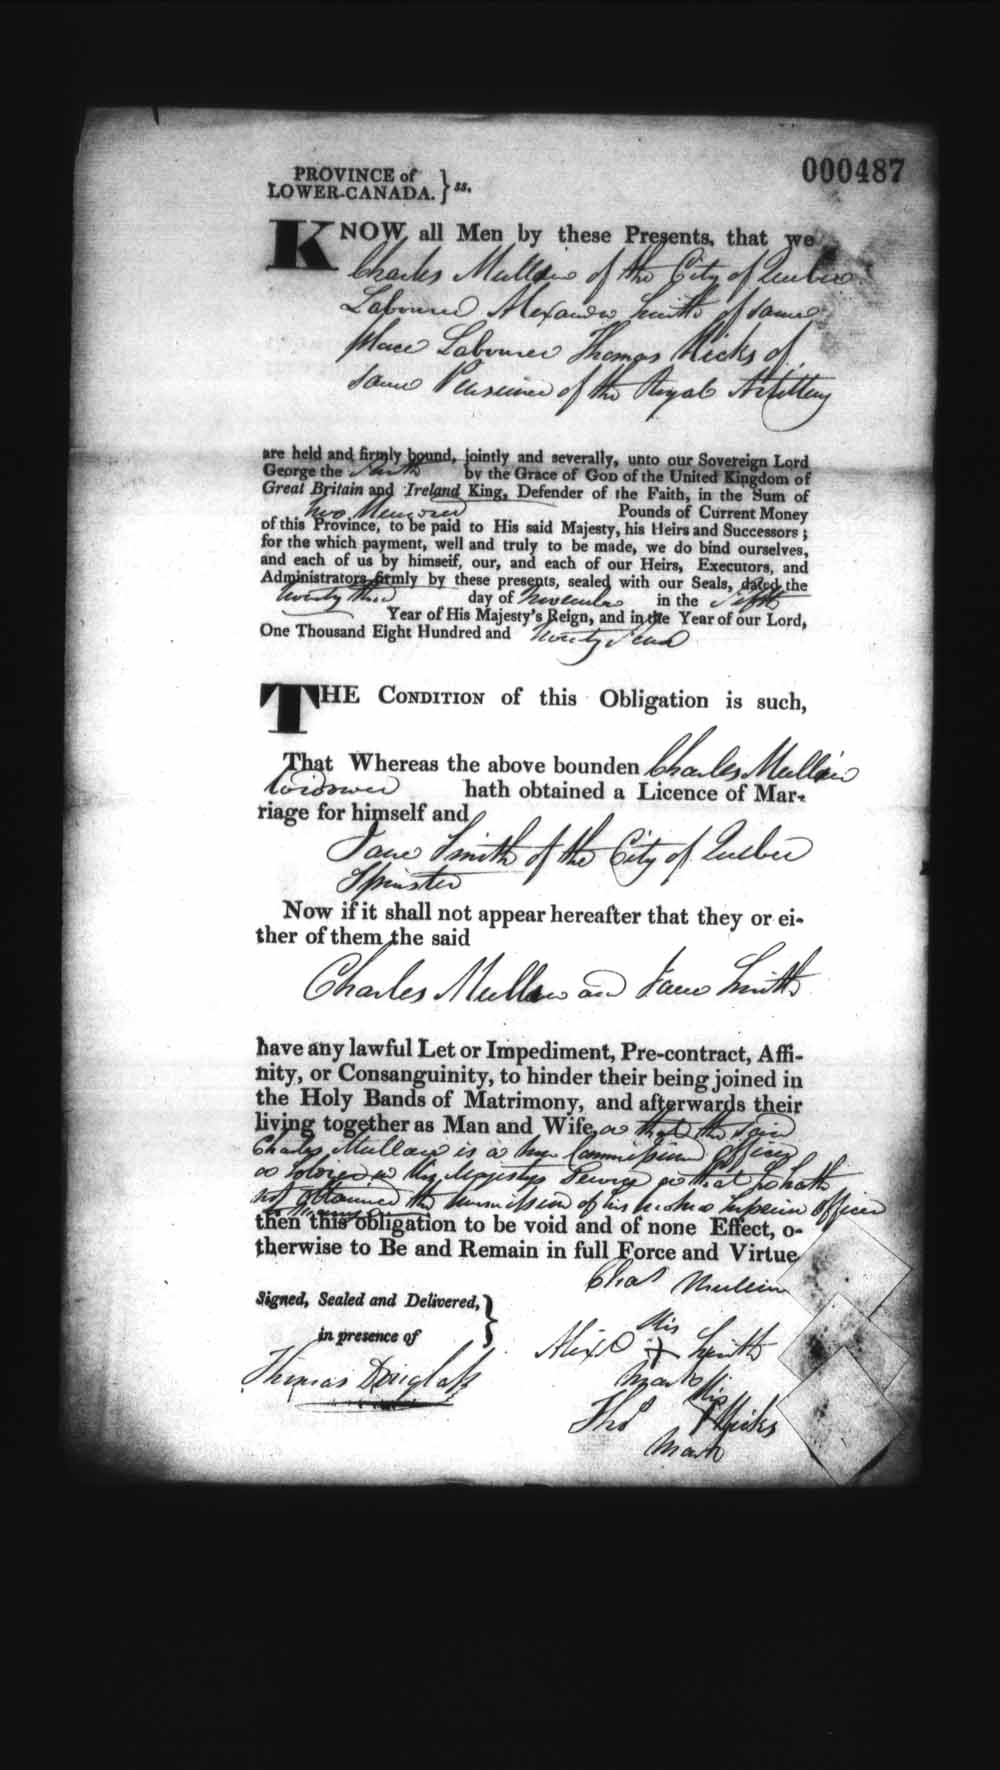 000487
PROVINCE of
LOWER-CANADA. } ss.
KNOW all Men by these Presents, that we
Charles Mullin of the City of Quebec
Labourer Alexander Smith of same
place Labourer Thomas Hicks of
same Pensioner of the Royal Artillery
are held and firmly bound, jointly and severally, unto our Sovereign Lord
George the by the Grace of GOD of the United Kingdom of
Great Britain and Ireland King, Defender of the Faith, in the Sum of
two Hundred Pounds of Current Money
of this Province, to be paid to His said Majesty, his Heirs and Successors;
for the which payment, well and truly to be made, we do bind ourselves,
and each of us by himself, our, and each of our Heirs, Executors, and
Administrators firmly by these presents, sealed with our Seals, dated the
twenty third day of November in the fifth
Year of His Majesty's Reign, and in the Year of our Lord,
One Thousand Eight Hundred and twenty four
THE CONDITION of this Obligation is such,
That Whereas the above bounden Charles Mullin
Widower hath obtained a Licence of Mar-
riage for himself and
Jane Smith of the City of Quebec
Spinster
Now if it shall not appear hereafter that they or ei-
ther of them the said
Charles Mullin and Jane Smith
have any lawful Let or Impediment, Pre-contract, Affi-
nity, or Consanguinity, to hinder their being joined in
the Holy Bands of Matrimony, and afterwards their
living together as Man and Wife, or that the said
Charles Mullin is a Commission officer
or Soldier in his Majestys Service or that he hath
not obtained the permission of his Superior officer
then this obligation to be void and of none Effect, o-
therwise to Be and Remain in full Force and Virtue
Chas Mullin
Signed, Sealed and Delivered, }
in presence of
His
Alexr + Smith
Mark
Thomas Douglass
His
Thos Hicks
Mark